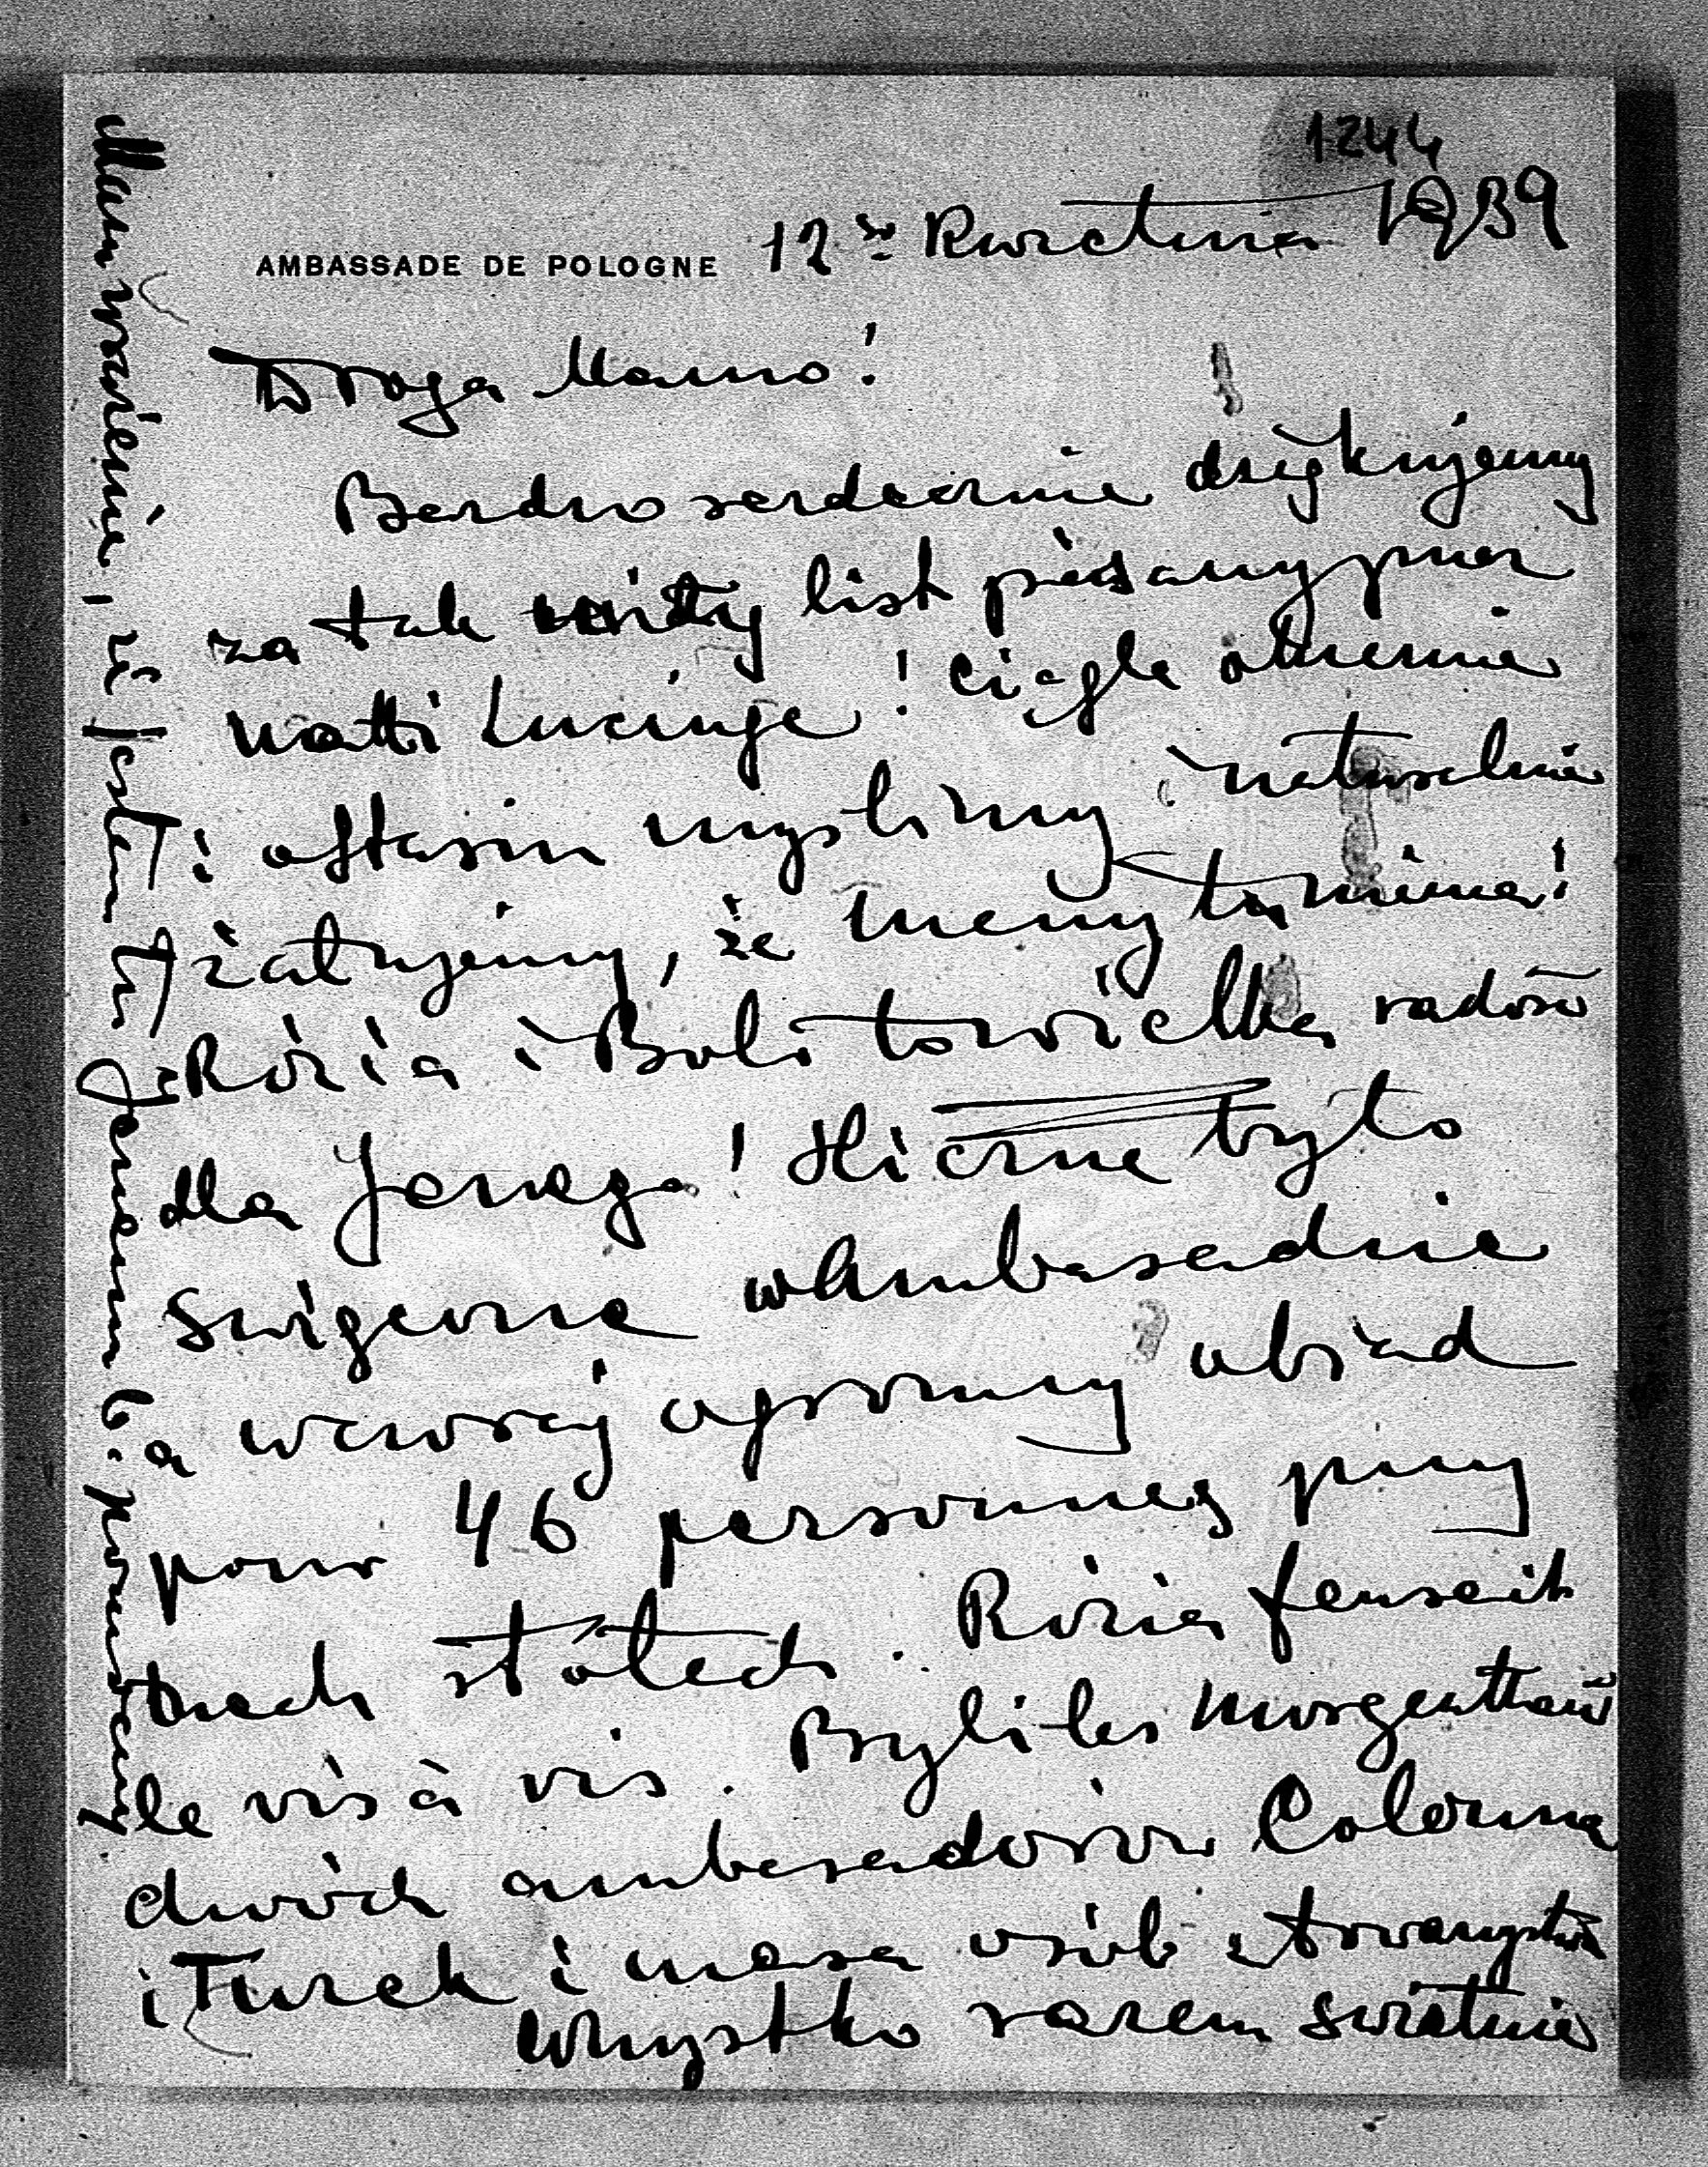 1244
AMBASSADE DE POLOGNE 12go Kwietnia 1939
Droga Mamo!
Bardzo serdecznie dziękujemy
za tak list pisany przez
Watti Lucinge! Ciągle o Mamie
i o Stasiu myślimy i naturalnie
żałujemy, że Mamy tu nima!
Rózia i Bobi to wielka radość
dla Jerzego! Śliczne było
Święcone w Ambasadzie
a wczoraj ogromny obiad
pour 46 personnes przy
trzech stołach. Rózia faisait
le vis à vis. Byli les Morgenthau
dwóch ambasadorów Colonna
i Turek i masa osób z towarzystwa
Wszystko razem świetnie
Mam wrażenie, że jestem tu Jerzemu b. pomocny.